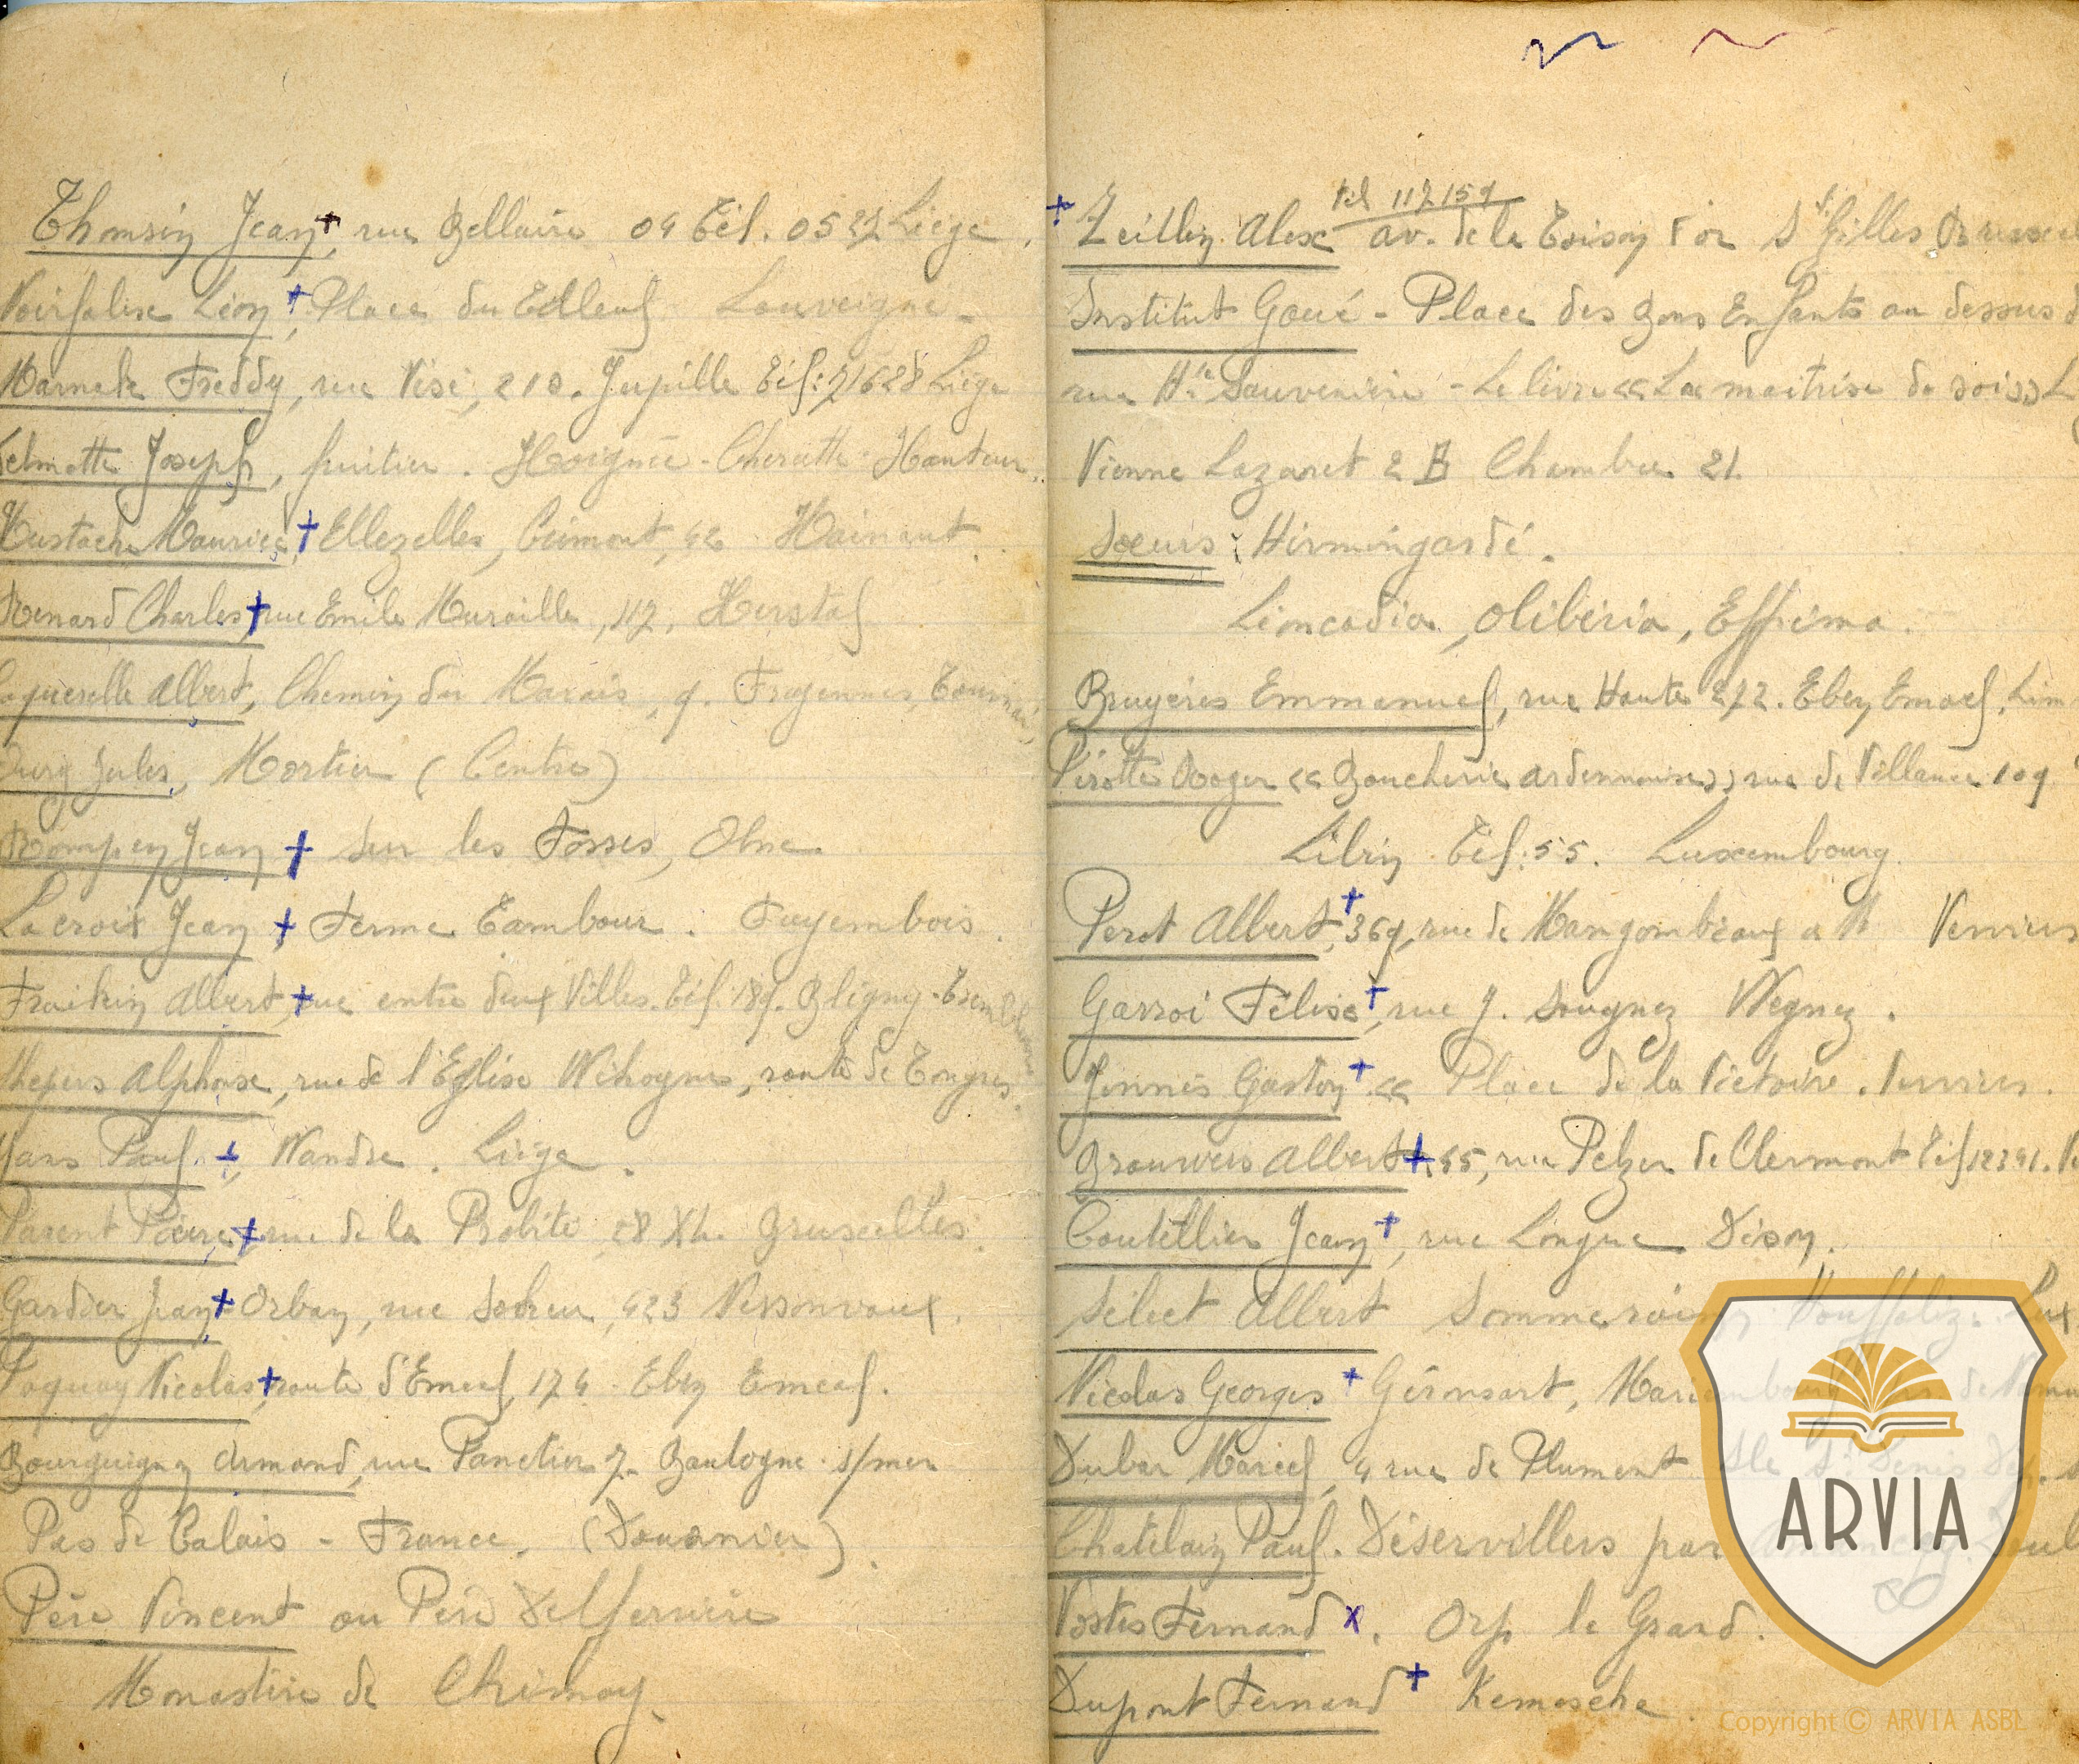 Thomsin Jean, rue Bellaire 04 Tél. 0527 Liége.
Noirfalise Léon, Place du Tilleul Louveigné.
Freddy, rue Visé, 210. Jupille Tél: 71628 Liége
Joseph, fruitier. Hoignée-Cheratte-Hauteur.
Maurice, Ellezelles, 42 Hainaut.
Renard Charles, rue Emile Muraille, 117. Herstal
Albert, Chemin du Marais, 9. Froyennes, Tournai
Jules, Mortier (Centre)
Jean sur les Fosses, Olne.
Lacroix Jean, Ferme Tambour. Fayembois.
Fraikin Albert, rue entre deux Villes. Tél. 189. Bligny-Trembleur
Alphonse, rue de l'Eglise Wihogne, route de Tongres.
Paul, Wandre. Liége.
Parent Pierre, rue de la Probité, 18 XL. Bruxelles.
Gardier Jean, Orban, rue 423 Nessonvaux.
Paquay Nicolas, route d'Emael, 174 Eben Emael.
Bourguignon Armand, rue Panetier 7. Boulogne s/mer
Pas de Calais - France. (Douanier).
Père Vincent ou Père Delferrière
Monastère de Chimay.
tél 117159
Zeillen Alex av. de la Toison d'or St Gilles
Institut Goué - Place des Bons Enfants au dessus
rue Hte Sauvenière - Le livre «La maitrise de soi»
Vienne Lazaret 2 B Chambre 21.
Soeurs: Hirmingardé.
Limcadia, Olibéria, Effrima.
Bruyères Emmanuel, rue Haute 272. Eben Emael.
Pirotte Roger «Boucherie ardennaise» rue de Villance 109
Libin Tél: 55. Luxembourg.
Perot Albert, 369, rue de Mangombroux Verviers
Garroi Félix, rue J. Sougnez Wegnez.
Jennès Gaston « Place de la Victoire. Verviers.
Brouwers Albert 55, rue Pelzer de Clermont Tél 12341.
Coutellier Jean, rue Longue Dison.
Sélect Albert Sommerain Houffalize. Lux
Nicolas Georges Géronsart, Mariembourg
Dubar Marcel, 4 rue de Plument Ile St Denis
Chatelain Paul. Déservillers par Amancey.
Vostes Fernand x. Orp le Grand.
Dupont Fernand Kemexhe.
ARVIA
Copyright © ARVIA ASBL